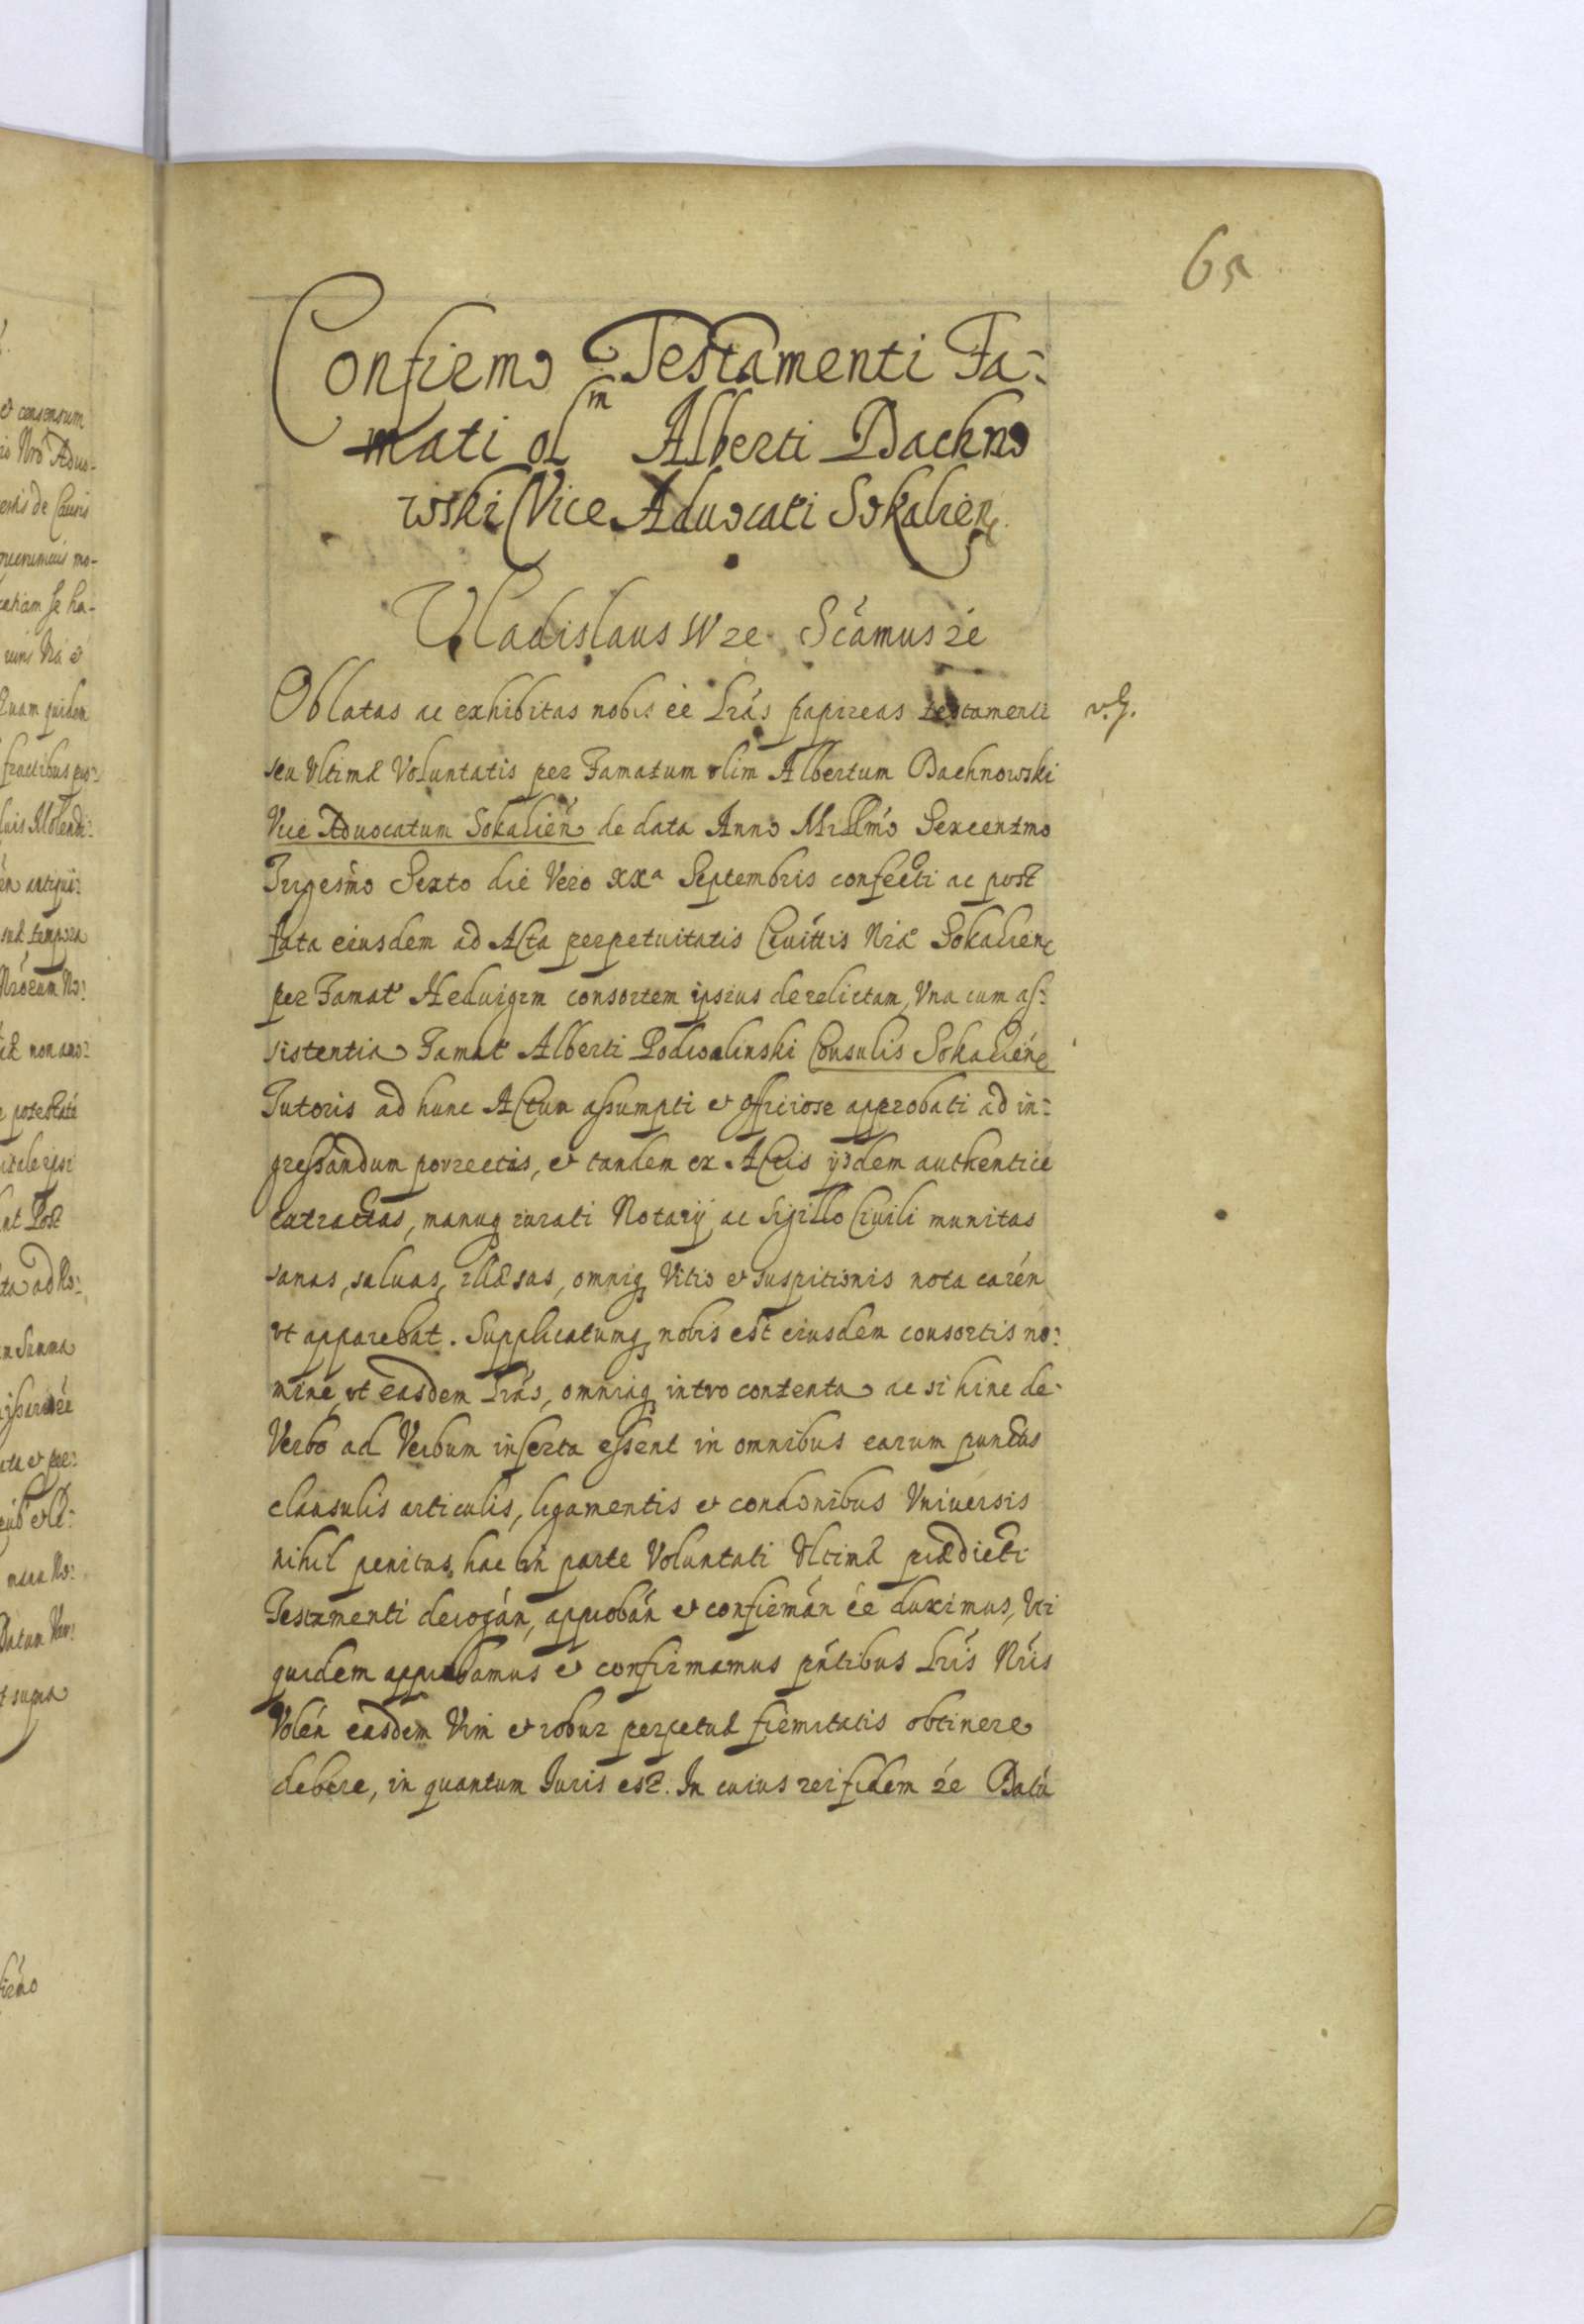 65
Confirmo Testamenti Fa-
mati olm Alberti Bachno
wski Vice Aduocati Sokalien
Vladislaus IV re. Scamus ré
Oblatas ac exhibitas nobis eé Lrás papireas testamenti
seu Vltimæ Voluntatis per Famatum olim Albertum Bachnowski
Vice Aduocatum Sokalien de data Anno Millmo Sexcentmo
Trigesmo Sexto die Vero XXa Septembris confecti ac post
fata eiusdem ad Acta perpetuitatis Ciuittis Nræ Sokalien
per Famat Heduigem consortem ipsius derelictam, Vna cum as-
sistentia Famat Alberti Podwalinski Consulis Sokalien
Tutoris ad hunc Actum assumpti et officiose approbati ad in-
gressandum porrectas, et tandem ex Actis ijsdem authentice
extractas, manuq iurati Notarij ac Sigillo Ciuili munitas
sanas, saluas, illæsas, omniq Vitio et suspitionis nota carén
vt apparebat. Supplicatumq nobis est eiusdem consortis no-
mine, vt easdem Lrás, omniaq intro contenta ac si hinc de
Verbo ad Verbum inserta essent in omnibus earum punctis
clausulis articulis, ligamentis et condonibus Vniuersis
nihil penitus hac in parte Voluntati Vltimæ prædicti
Testamenti derogán, approbán et confirmán eé duximus, Vti
quidem approbamus et confirmamus pntibus Lris Nris
Volén easdem Vim et robur perpetuæ firmitatis obtinere
debere, in quantum Iuris est. In cuius rei fidem ré Datú